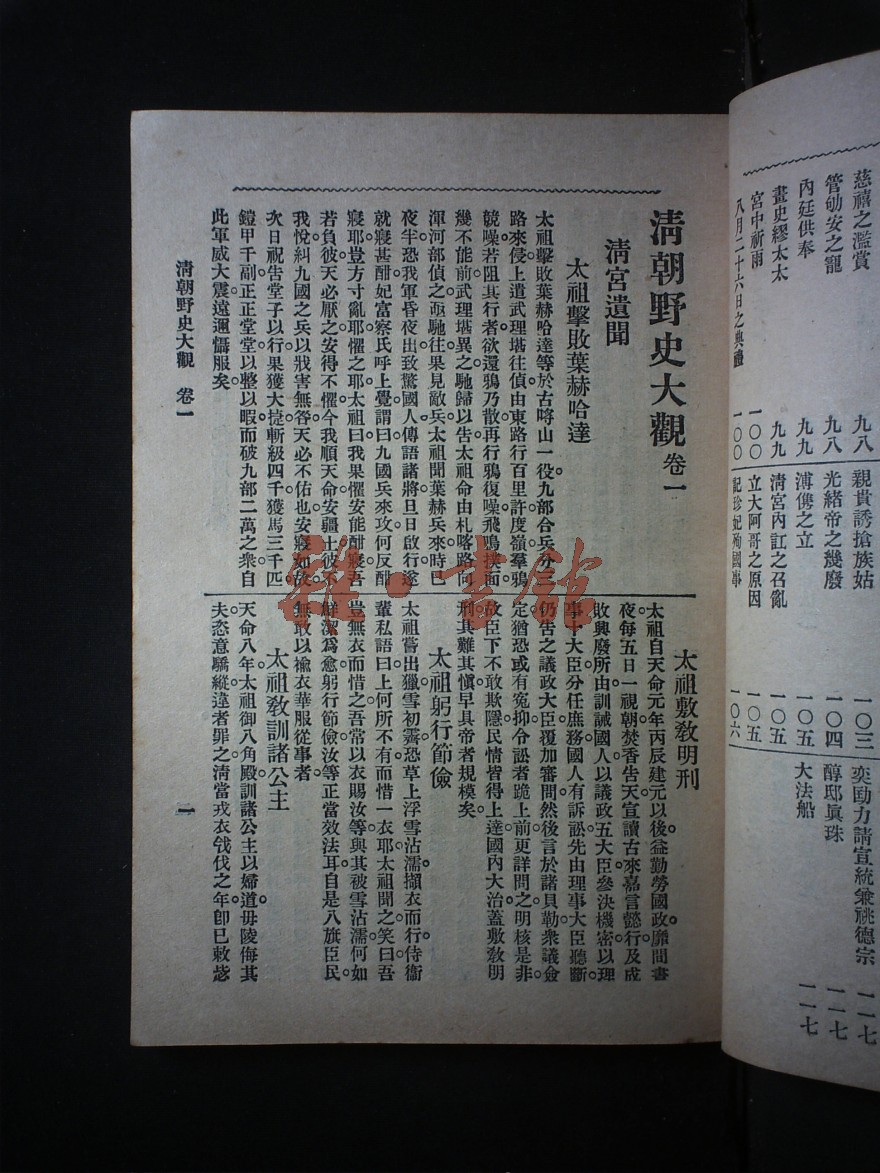 慈禧之濫賞 九八
管劬安之寵 九八
內廷供奉 九九
畫史繆太太 九九
宮中祈雨 一〇〇
八月二十六日之典禮 一〇〇
親貴誘搶族姑 一〇三
光緒帝之幾廢 一〇四
溥儁之立 一〇五
清宮內訌之召亂 一〇五
立大阿哥之原因 一〇五
記珍妃殉國事 一〇六
奕劻力請宣統兼祧德宗 一一七
醇邸眞珠 一一七
大法船 一一七
清朝野史大觀 卷一
清宮遺聞
太祖擊敗葉赫哈達
太祖擊敗葉赫哈達等於古哷山一役。九部合兵分三
路來侵上遣武理堪往偵由東路行百里許度嶺羣鴉
競噪若阻其行者欲還鴉乃散再行鴉復噪飛鳴撲面
幾不能前武理堪異之馳歸以告太祖命由札喀路向
渾河部偵之亟馳往果見敵兵太祖聞葉赫兵來時已
夜半恐我軍昏夜出致驚國人傳語諸將旦日啟行遂
就寢甚酣妃富察氏呼上覺謂曰九國兵來攻何反酣
寢耶豈方寸亂耶懼之耶太祖曰我果懼安能酣寢吾
若負彼天必厭之安得不懼今我順天命安疆土彼不
我悅糾九國之兵以戕害無咎天必不佑也安寢如故。
次日祝告堂子以行果獲大捷斬級四千獲馬三千匹
鎧甲千副正正堂堂以整以暇而破九部二萬之衆自
此軍威大震遠邇懾服矣。
太祖敷敎明刑
太祖自天命元年丙辰建元以後益勤勞國政。靡間晝
夜每五日一視朝焚香告天宣讀古來嘉言懿行及成
敗興廢所由訓誡國人以議政五大臣參決機密以理
事十大臣分任庶務國人有訴訟先由理事大臣聽斷
仍告之議政大臣覆加審問然後言於諸貝勒衆議僉
定猶恐或有冤抑令訟者跪上前更詳問之明核是非
故臣下不敢欺隱民情皆得上達國內大治蓋敷敎明
刑其難其愼早具帝者規模矣。
太祖躬行節儉
太祖嘗出獵雪初霽恐草上浮雪沾濡擷衣而行侍衞
輩私語曰上何所不有而惜一衣耶太祖聞之笑曰吾
豈無衣而惜之吾常以衣賜汝等與其被雪沾濡何如
鮮潔爲愈躬行節儉汝等正當效法耳自是八旗臣民
無敢以褕衣華服從事者。
太祖敎訓諸公主
天命八年太祖御八角殿訓諸公主以婦道毋陵侮其
夫恣意驕縱違者罪之淸當戎衣戧伐之年卽已敕
清朝野史大觀 卷一
一
雜·書館